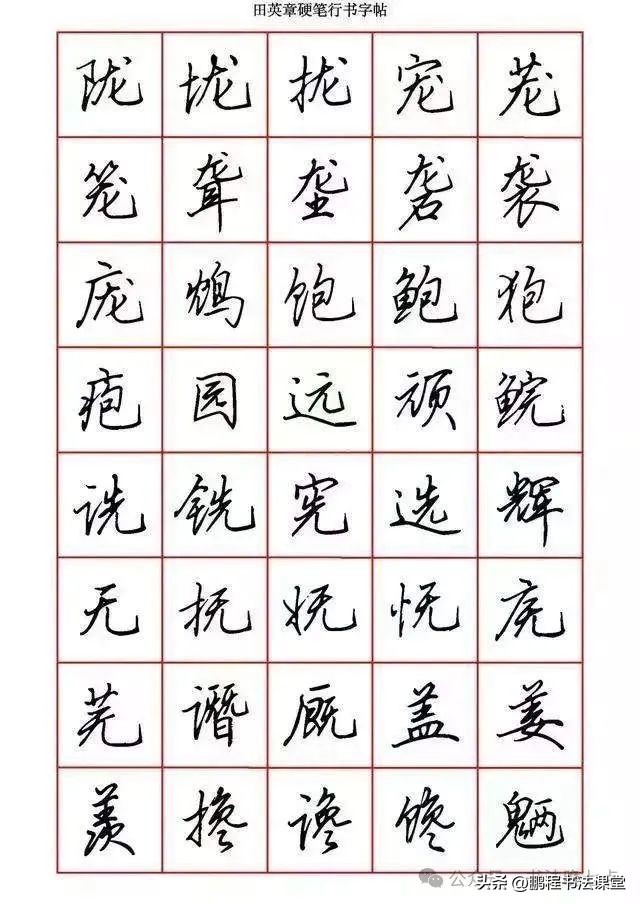 田英章硬笔行书字帖
陇垅拢宠茏
笼聋垄砻袭
庞饱鲍狍
疱园远顽鲩
诜铣宪选辉
无抚妩怃庑
芜谮厩盖姜
羡搀谗馋魉
公众号
头条 @鹏程书法课堂